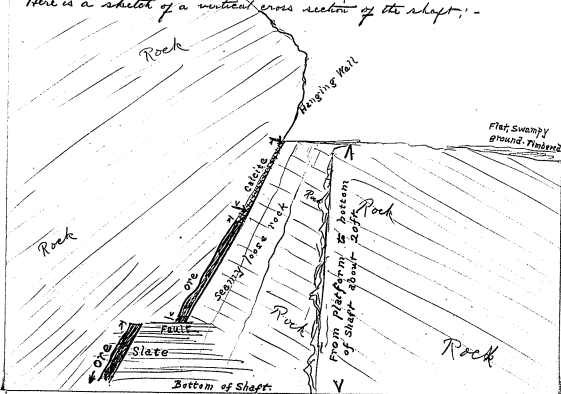 Here is a sketch of a vertical cross section of the shaft:-
Rock
Hanging Wall
Flat, Swampy
ground. Timbered
Calcite
Rock
Rock
Rock
ore
Seamy loose rock
From Platform to bottom
of Shaft about 20ft
Fault
Rock
ore
Slate
Rock
Bottom of Shaft.